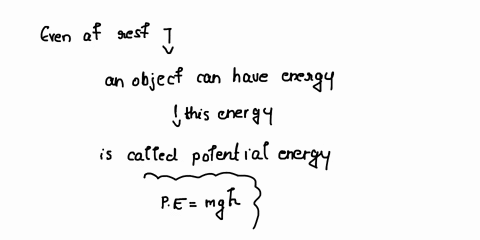 Even at rest
an object can have energy
this energy
is called potential energy
P.E = mgh